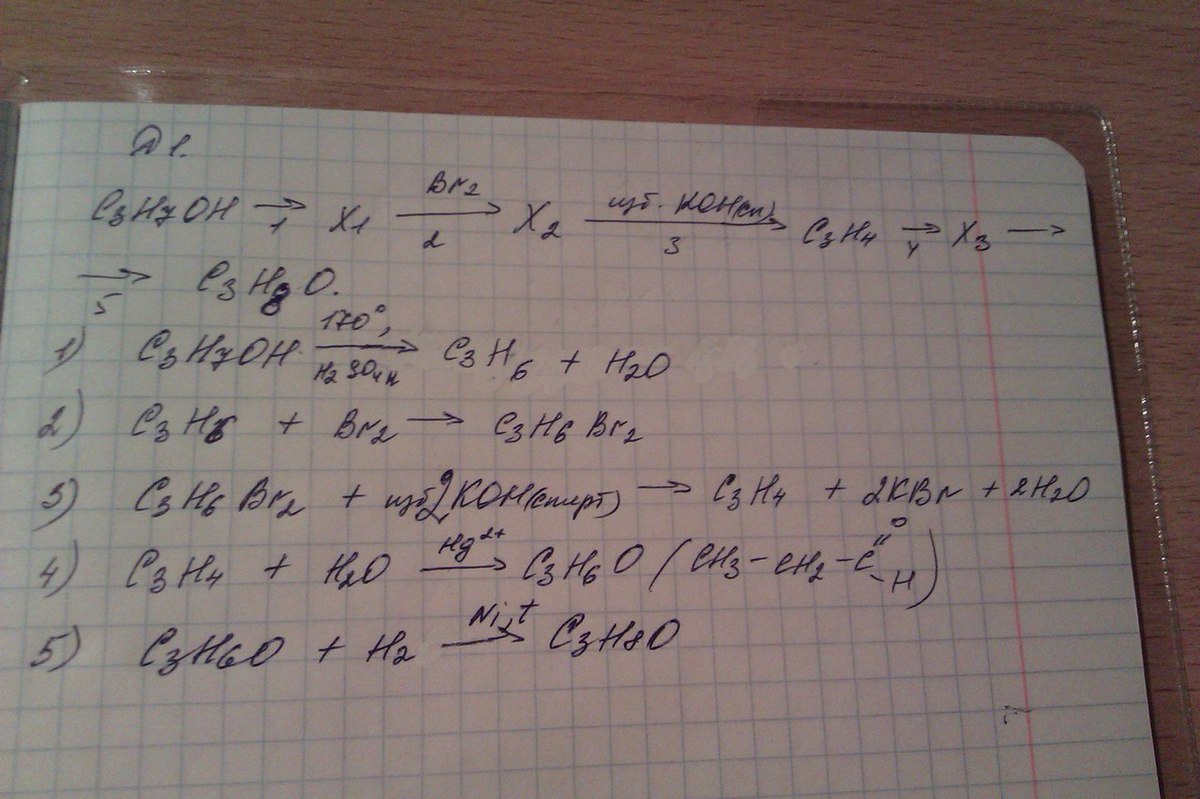 Д1.
C₃H₇OH →₁ X₁ —Br₂→₂ X₂ —изб. KOH(сп)→₃ C₃H₄ →₄ X₃ →
→₅ C₃H₈O.
1) C₃H₇OH —170°, H₂SO₄ к→ C₃H₆ + H₂O
2) C₃H₆ + Br₂ → C₃H₆Br₂
3) C₃H₆Br₂ + изб 2KOH(спирт) → C₃H₄ + 2KBr + 2H₂O
4) C₃H₄ + H₂O —Hg²⁺→ C₃H₆O (CH₃-CH₂-C(=O)-H)
5) C₃H₆O + H₂ —Ni, t→ C₃H₈O